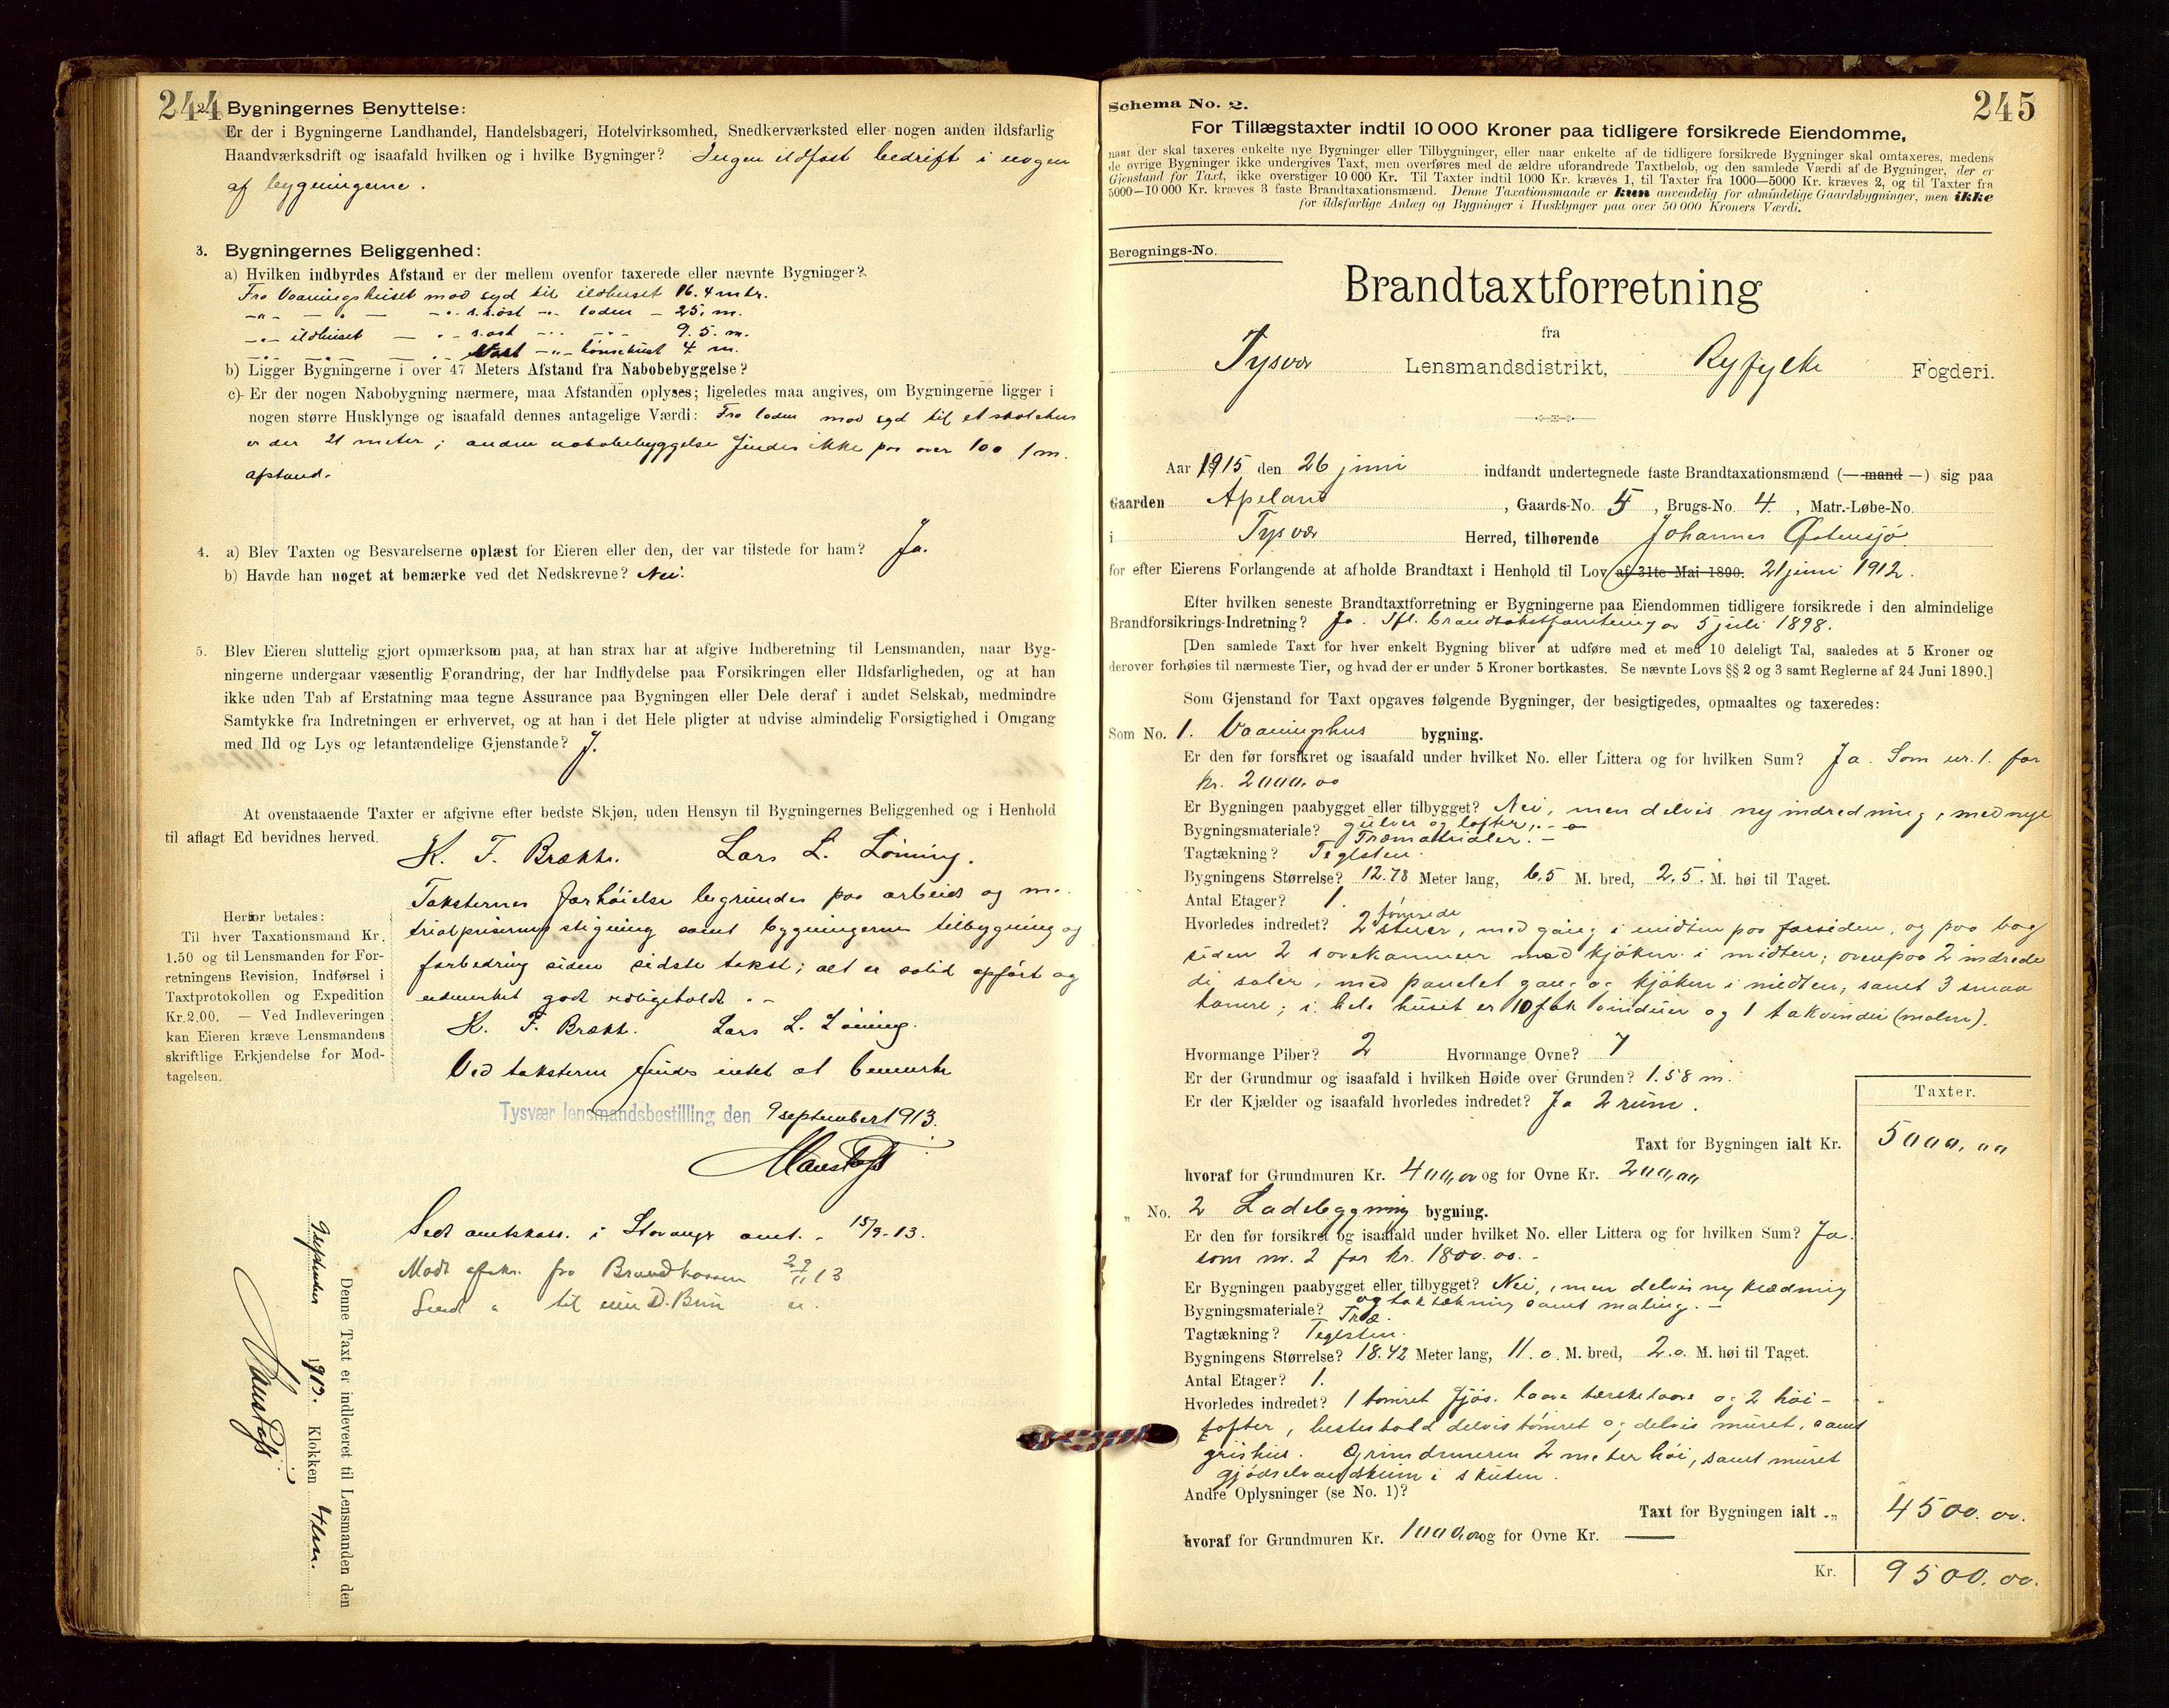 244
2. Bygningernes Benyttelse:
Er der i Bygningerne Landhandel, Handelsbageri, Hotelvirksomhed, Snedkerværksted eller nogen anden ildsfarlig
Haandværksdrift og isaafald hvilken og i hvilke Bygninger? Ingen ildfast bedrift i nogen
af bygningerne.
3. Bygningernes Beliggenhed:
a) Hvilken indbyrdes Afstand er der mellem ovenfor taxerede eller nævnte Bygninger?
Fra Vaaningshuset mod syd til ildhuset 16.4 mtr.
—"— — " — —"— s.s.øst —"— laden — 25. m.
—"— ildhuset — " — s.øst —"— —"— 9.5. m.
—"— —"— — " — Vest —"— hønsehust 4 m.
b) Ligger Bygningerne i over 47 Meters Afstand fra Nabobebyggelse?
c) Er der nogen Nabobygning nærmere, maa Afstanden oplyses; ligeledes maa angives, om Bygningerne ligger i
nogen større Husklynge og isaafald dennes antagelige Værdi: Fra laden mod syd til et skolehus
er der 21 meter; anden nabobebyggelse findes ikke paa over 100 m.
afstand.
4. a) Blev Taxten og Besvarelserne oplæst for Eieren eller den, der var tilstede for ham? Ja.
b) Havde han noget at bemærke ved det Nedskrevne? Nei.
5. Blev Eieren sluttelig gjort opmærksom paa, at han strax har at afgive Indberetning til Lensmanden, naar Byg-
ningerne undergaar væsentlig Forandring, der har Indflydelse paa Forsikringen eller Ildsfarligheden, og at han
ikke uden Tab af Erstatning maa tegne Assurance paa Bygningen eller Dele deraf i andet Selskab, medmindre
Samtykke fra Indretningen er erhvervet, og at han i det Hele pligter at udvise almindelig Forsigtighed i Omgang
med Ild og Lys og letantændelige Gjenstande? J.
At ovenstaaende Taxter er afgivne efter bedste Skjøn, uden Hensyn til Bygningernes Beliggenhed og i Henhold
til aflagt Ed bevidnes herved.
K. F. Brække. Lars L. Löning.
Taksternes forhöielse begrundes paa arbeids og ma-
trialprisernes stigning samt bygningernes tilbygning og
forbedring siden sidste takst; alt er solid opført og
udmerket godt vedligeholdt. —
K. F. Brækk. Lars L. Löning.
Ved taksterne findes intet at bemerke
Tysvær lensmandsbestilling den 9 september 1913.
Herfor betales:
Til hver Taxationsmand Kr.
1.50 og til Lensmanden for For-
retningens Revision, Indførsel i
Taxtprotokollen og Expedition
Kr. 2.00. — Ved Indleveringen
kan Eieren kræve Lensmandens
skriftlige Erkjendelse for Mod-
tagelsen.
Sendt amtskass. i Stavanger amt. - 15/9-13.
Modt afskr. fra Brandkassen 29/11 13
Sendt " til D. Brun "
Denne Taxt er indleveret til Lensmanden den
9 september 1913. Klokken 4 em.
245
Schema No. 2.
For Tillægstaxter indtil 10 000 Kroner paa tidligere forsikrede Eiendomme,
naar der skal taxeres enkelte nye Bygninger eller Tilbygninger, eller naar enkelte af de tidligere forsikrede Bygninger skal omtaxeres, medens
de øvrige Bygninger ikke undergives Taxt, men overføres med de ældre uforandrede Taxtbeløb, og den samlede Værdi af de Bygninger, der er
Gjenstand for Taxt, ikke overstiger 10 000 Kr. Til Taxter indtil 1000 Kr. kræves 1, til Taxter fra 1000—5000 Kr. kræves 2, og til Taxter fra
5000—10 000 Kr. kræves 3 faste Brandtaxationsmænd. Denne Taxationsmaade er kun anvendelig for almindelige Gaardsbygninger, men ikke
for ildsfarlige Anlæg og Bygninger i Husklynger paa over 50 000 Kroners Værdi.
Beregnings-No.
Brandtaxtforretning
fra
Tysvær Lensmandsdistrikt, Ryfylke Fogderi.
Aar 1915 den 26 juni indfandt undertegnede faste Brandtaxationsmænd (— mand —) sig paa
Gaarden Apeland, Gaards-No. 5, Brugs-No. 4, Matr.-Løbe-No.
i Tysvær Herred, tilhørende Johannes Østensjø
for efter Eierens Forlangende at afholde Brandtaxt i Henhold til Lov af 31te Mai 1890. 21 juni 1912.
Efter hvilken seneste Brandtaxtforretning er Bygningerne paa Eiendommen tidligere forsikrede i den almindelige
Brandforsikrings-Indretning? Ja. Ifl. brandtakstforretning av 5 juli 1898.
[Den samlede Taxt for hver enkelt Bygning bliver at udføre med et med 10 deleligt Tal, saaledes at 5 Kroner og
derover forhøies til nærmeste Tier, og hvad der er under 5 Kroner bortkastes. Se nævnte Lovs §§ 2 og 3 samt Reglerne af 24 Juni 1890.]
Som Gjenstand for Taxt opgaves følgende Bygninger, der besigtigedes, opmaaltes og taxeredes:
Som No. 1. Vaaningshus bygning.
Er den før forsikret og isaafald under hvilket No. eller Littera og for hvilken Sum? Ja. Som nr. 1. for
kr. 2000.00
Er Bygningen paabygget eller tilbygget? Nei, men delvis ny indredning, med nye
gulver og lofter. — 
Bygningsmateriale? Træmatrialer. —
Tagtækning? Teglsten.
Bygningens Størrelse? 12.78 Meter lang, 6.5 M. bred, 2.5. M. høi til Taget.
Antal Etager? 1.
Hvorledes indredet? 2 tömrede stuer, med gang i midten paa forsiden, og paa bag
siden 2 sovekammer med kjøken i midten; ovenpaa 2 indrede
de saler, med panelet gang og kjøken i midten, samt 3 smaa
kamre; i hele huset er 10 fak vinduer og 1 takvindu (malm).
Hvormange Piber? 2 Hvormange Ovne? 7
Er der Grundmur og isaafald i hvilken Høide over Grunden? 1.58 m.
Er der Kjælder og isaafald hvorledes indredet? Ja 2 rum.
Taxter.
Taxt for Bygningen ialt Kr. 5000,00
hvoraf for Grundmuren Kr. 400,00 og for Ovne Kr. 200,00
„ No. 2 Ladebygning bygning.
Er den før forsikret og isaafald under hvilket No. eller Littera og for hvilken Sum? Ja.
som nr. 2 for kr. 1800.00. -
Er Bygningen paabygget eller tilbygget? Nei, men delvis ny klædning
og taktækning samt maling. —
Bygningsmateriale? Træ.
Tagtækning? Teglsten.
Bygningens Størrelse? 18.42 Meter lang, 11.0 M. bred, 2.0. M. høi til Taget.
Antal Etager? 1.
Hvorledes indredet? 1 tømret fjøs, laave tærskelaave og 2 høi-
lofter, hestestald delvis tömret og delvis muret, samt
grishus. Grundmuren 2 meter höi, samt muret
gjödselvandskum i skuten.
Andre Oplysninger (se No. 1)?
Taxt for Bygningen ialt „ 4500.00.
hvoraf for Grundmuren Kr. 1000,00 og for Ovne Kr. —
Kr. 9500.00.